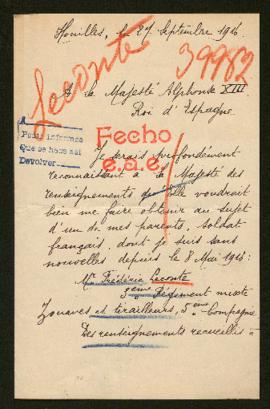 Houilles, le 27 Septembre 1916
Leconte
39982
A Sa Majesté Alphonse XIII
Roi d'Espagne
A
Pedir informes
Que se hace así
Devolver
Fecho
Je serais profondément
reconnaissant à Sa Majesté des
renseignements qu'Elle voudrait
bien me faire obtenir au sujet
d'un de mes parents, soldat
français, dont je suis sans
nouvelles depuis le 8 Mai 1916:
Mr Frédéric Leconte
3ème Régiment mixte
Zouaves et tirailleurs, 5ème Compagnie
Des renseignements recueillis à